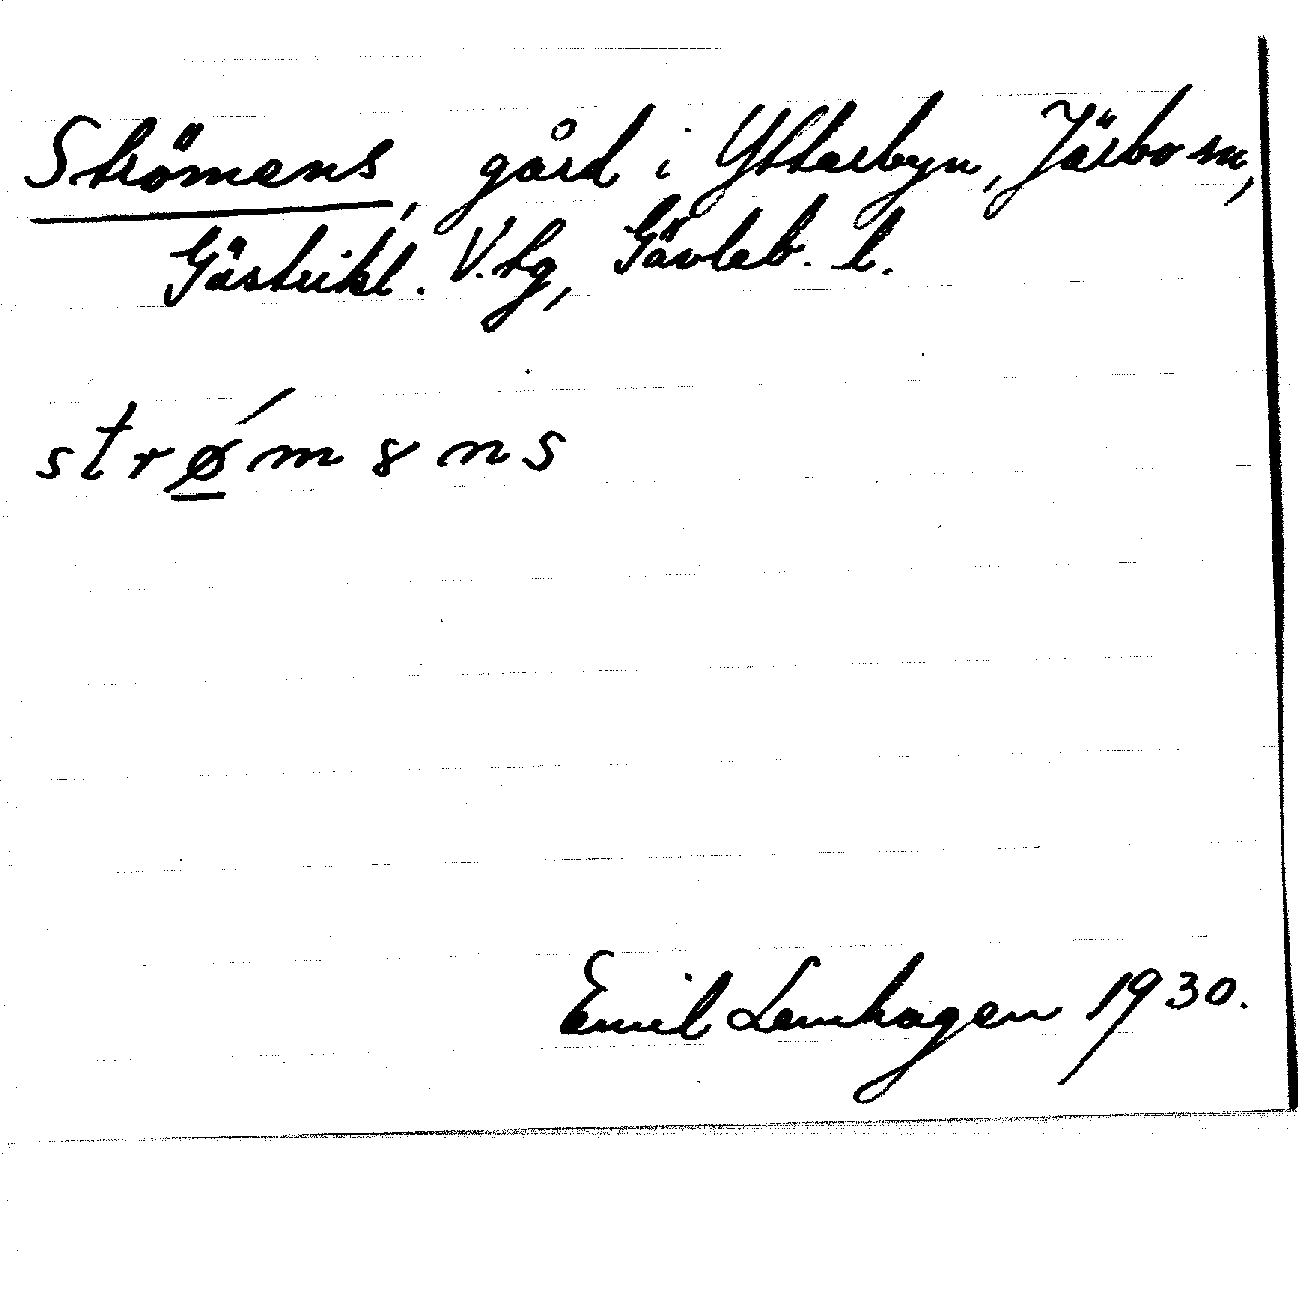 Strömens, gård i Ytterbyn, Järbo sn,
Gästrikl. V. tg, Gävleb. l.
strǿ̲mȣns
Emil Lenhagen 1930.